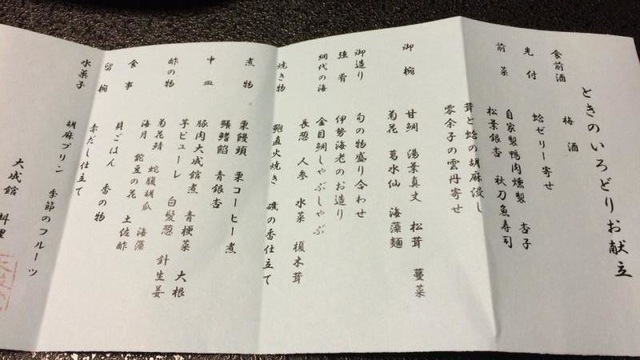 ときのいろどりお献立
食前酒 梅酒
先付 蛤ゼリー寄せ
前菜 自家製鴨肉燻製 杏子
松葉銀杏 秋刀魚寿司
茸と蛤の胡麻浸し
零余子の雲丹寄せ
御椀 甘鯛 湯葉真丈 松茸 蔓菜
菊花 葛水仙 海藻麺
御造り 旬の物盛り合わせ
強肴 伊勢海老のお造り
網代の海 金目鯛しゃぶしゃぶ
長葱 人参 水菜 榎木茸
焼き物 鮑直火焼き 磯の香仕立て
煮物 栗饅頭 栗コーヒー煮
鱶鰭餡 青銀杏
中皿 豚肉大成館煮 青梗菜 大根
芋ピューレ 白髪葱 針生姜
酢の物 菊花鯖 蛇腹胡瓜 海藻
海月 蛇豆の花 土佐酢
食事 貝ごはん 香の物
留椀 赤だし仕立て
水菓子 胡麻プリン 季節のフルーツ
大成館 料理